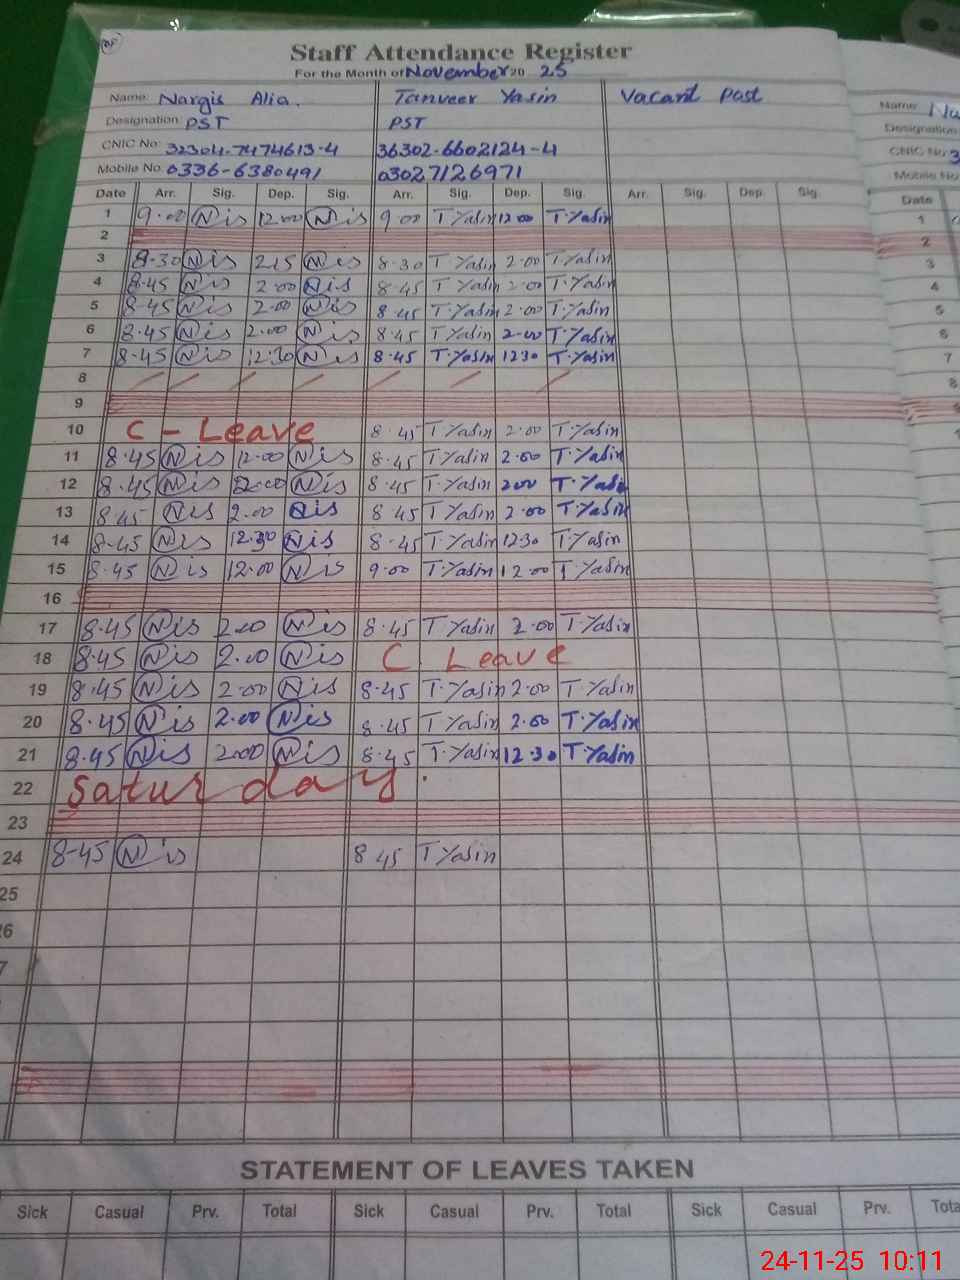 Staff Attendance Register
For the Month of November 20 25
Name: Nargis Alia. Tanveer Yasin Vacant Post Name:
Designation: PST PST Designation
CNIC No: 32304-7474613-4 36302-6602124-4 CNIC No: 3
Mobile No: 0336-6380491 03027126971 Mobile No
Date Arr. Sig. Dep. Sig. Arr. Sig. Dep. Sig. Arr. Sig. Dep. Sig. Date
1 9.00 Nis 12.00 Nis 9.00 T.Yasin 12.00 T.Yasin 1
2 2
3 8.30 Nis 2.15 Nis 8.30 T.Yasin 2.00 T.Yasin 3
4 8.45 Nis 2.00 Nis 8.45 T.Yasin 2.00 T.Yasin 4
5 8.45 Nis 2.00 Nis 8.45 T.Yasin 2.00 T.Yasin 5
6 8.45 Nis 2.00 Nis 8.45 T.Yasin 2.00 T.Yasin 6
7 8.45 Nis 12.30 Nis 8.45 T.Yasin 12.30 T.Yasin 7
8 8
9 9
10 C - Leave 8.45 T.Yasin 2.00 T.Yasin
11 8.45 Nis 12.00 Nis 8.45 T.Yasin 2.00 T.Yasin
12 8.45 Nis 2.00 Nis 8.45 T.Yasin 2.00 T.Yasin
13 8.45 Nis 2.00 Nis 8.45 T.Yasin 2.00 T.Yasin
14 8.45 Nis 12.30 Nis 8.45 T.Yasin 12.30 T.Yasin
15 8.45 Nis 12.00 Nis 9.00 T.Yasin 12.00 T.Yasin
16
17 8.45 Nis 2.00 Nis 8.45 T.Yasin 2.00 T.Yasin
18 8.45 Nis 2.00 Nis C Leave
19 8.45 Nis 2.00 Nis 8.45 T.Yasin 2.00 T.Yasin
20 8.45 Nis 2.00 Nis 8.45 T.Yasin 2.00 T.Yasin
21 8.45 Nis 2.00 Nis 8.45 T.Yasin 12.30 T.Yasin
22 Saturday.
23
24 8-45 Nis 8.45 T.Yasin
25
STATEMENT OF LEAVES TAKEN
Sick Casual Prv. Total Sick Casual Prv. Total Sick Casual Prv.
24-11-25 10:11